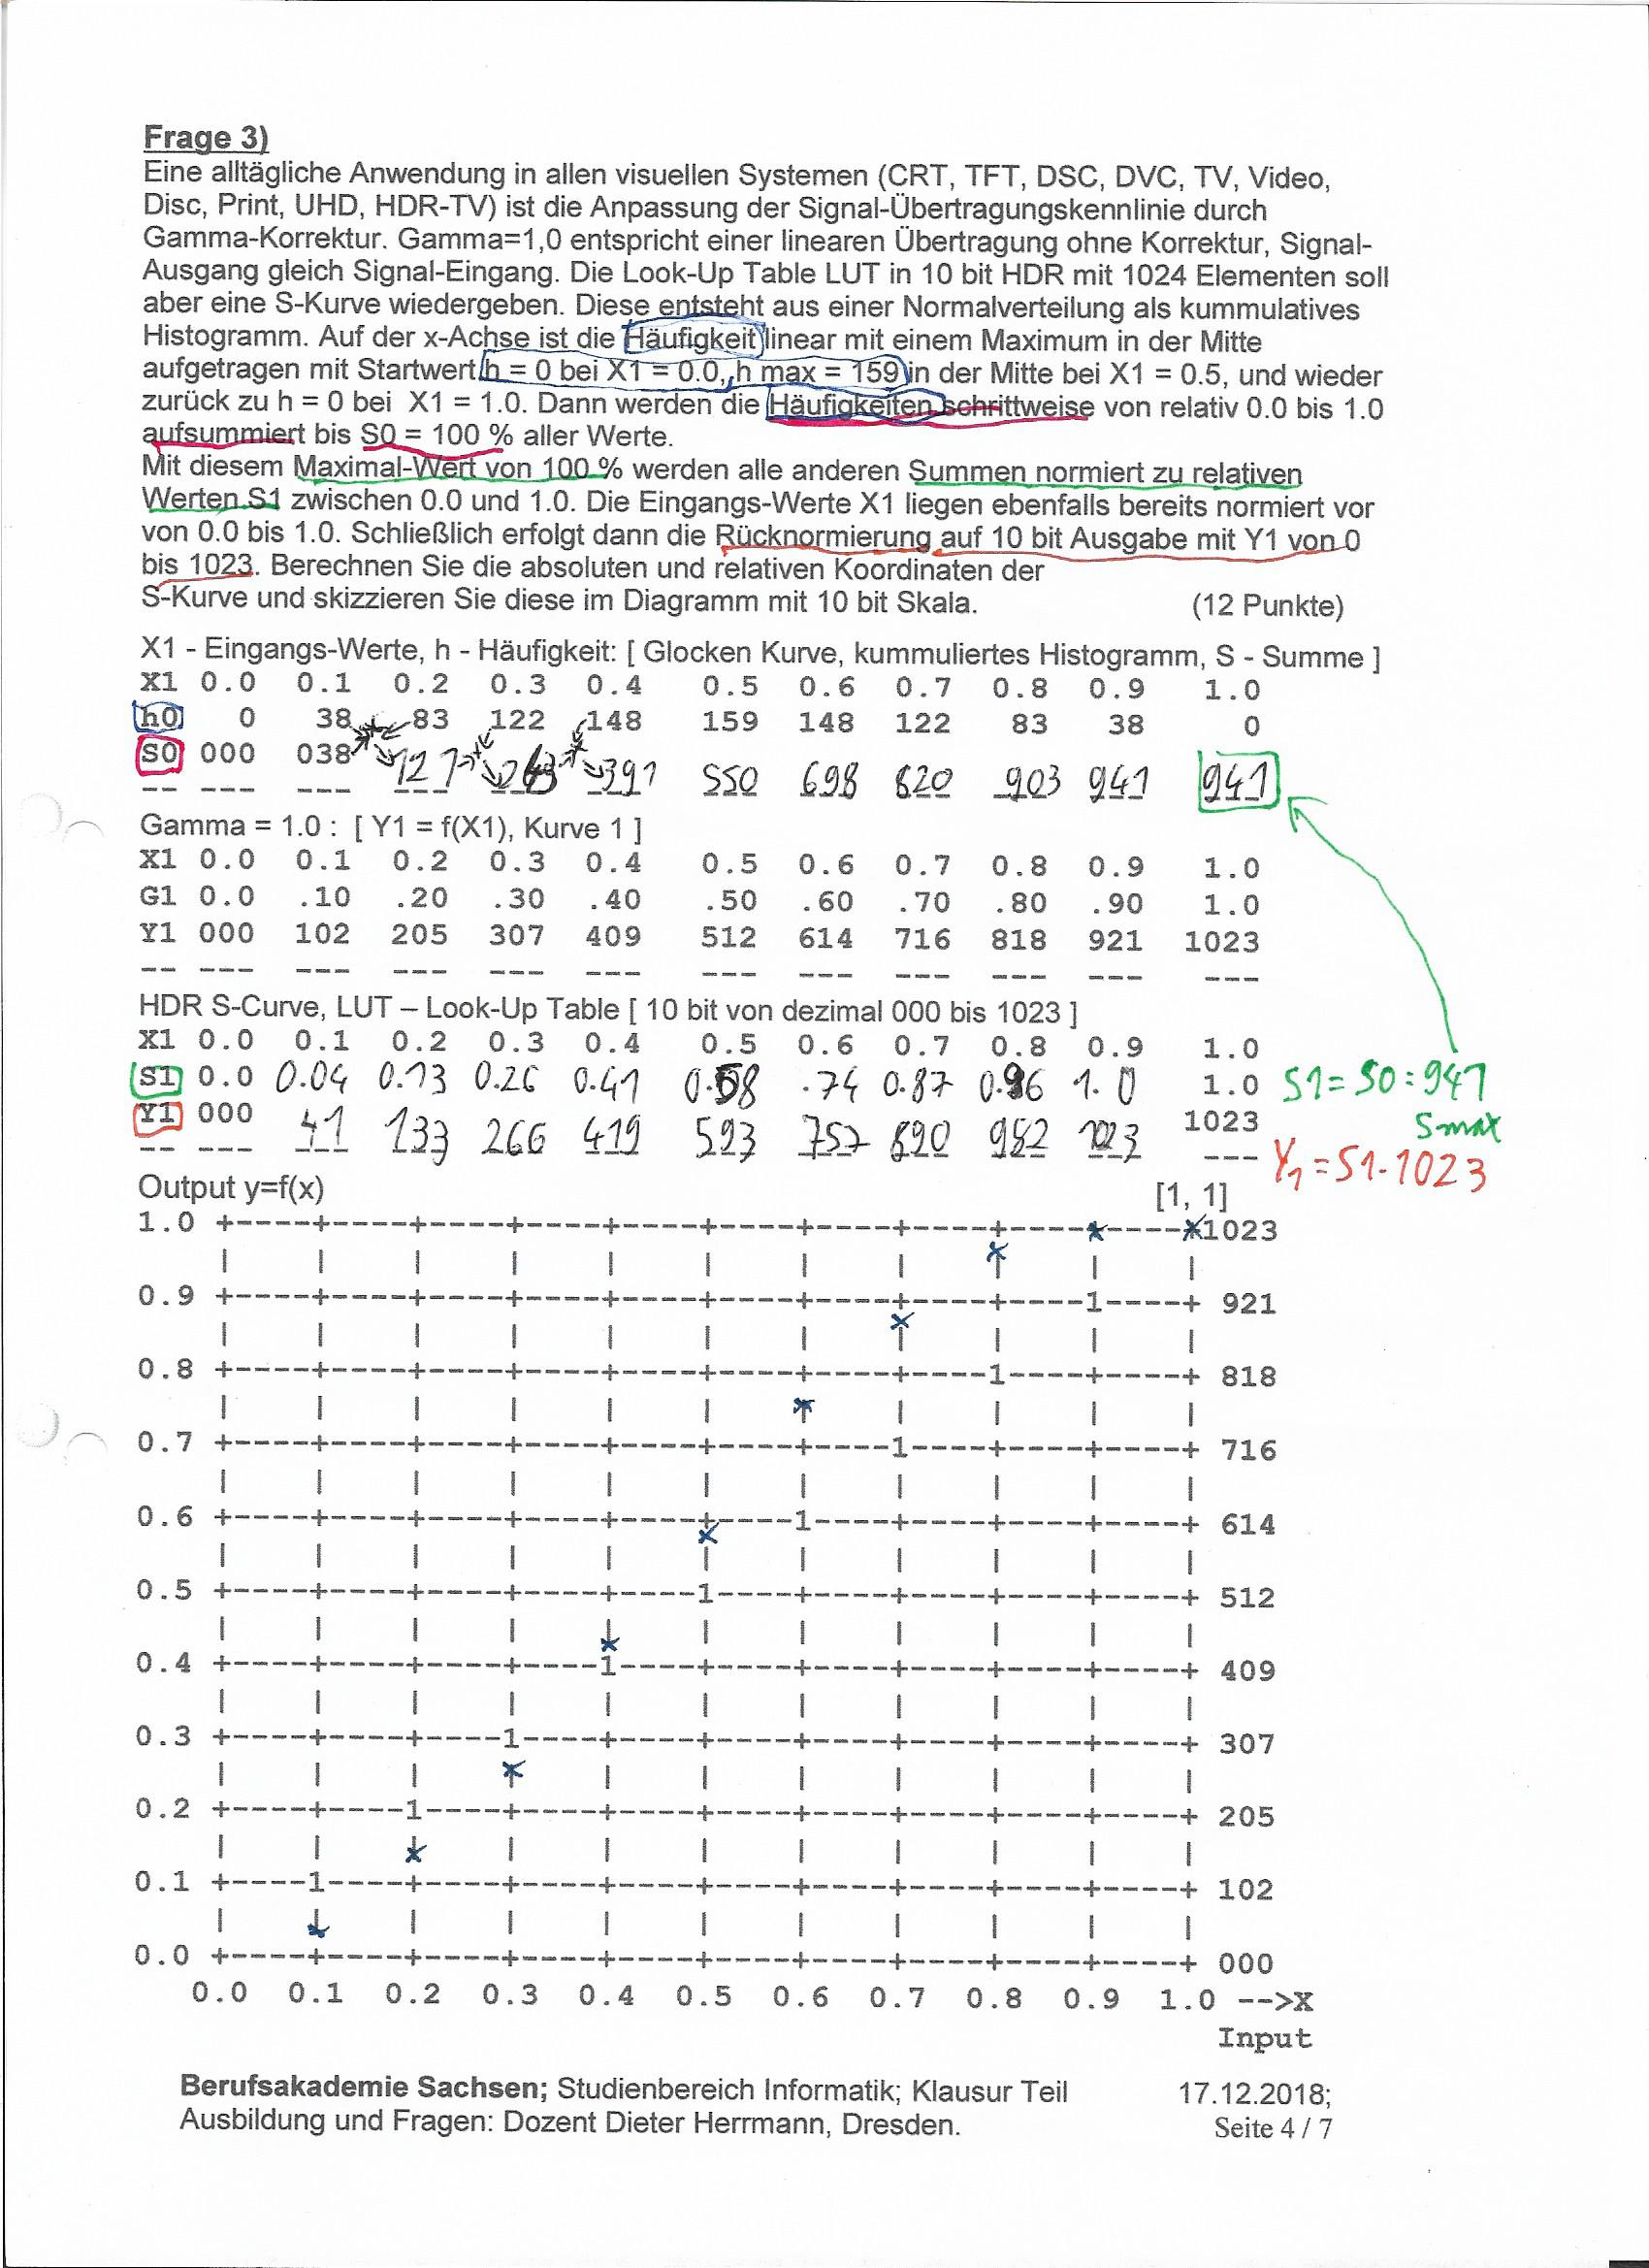 Frage 3)
Eine alltägliche Anwendung in allen visuellen Systemen (CRT, TFT, DSC, DVC, TV, Video,
Disc, Print, UHD, HDR-TV) ist die Anpassung der Signal-Übertragungskennlinie durch
Gamma-Korrektur. Gamma=1,0 entspricht einer linearen Übertragung ohne Korrektur, Signal-
Ausgang gleich Signal-Eingang. Die Look-Up Table LUT in 10 bit HDR mit 1024 Elementen soll
aber eine S-Kurve wiedergeben. Diese entsteht aus einer Normalverteilung als kummulatives
Histogramm. Auf der x-Achse ist die Häufigkeit linear mit einem Maximum in der Mitte
aufgetragen mit Startwert h = 0 bei X1 = 0.0, h max = 159 in der Mitte bei X1 = 0.5, und wieder
zurück zu h = 0 bei X1 = 1.0. Dann werden die Häufigkeiten schrittweise von relativ 0.0 bis 1.0
aufsummiert bis S0 = 100 % aller Werte.
Mit diesem Maximal-Wert von 100 % werden alle anderen Summen normiert zu relativen
Werten S1 zwischen 0.0 und 1.0. Die Eingangs-Werte X1 liegen ebenfalls bereits normiert vor
von 0.0 bis 1.0. Schließlich erfolgt dann die Rücknormierung auf 10 bit Ausgabe mit Y1 von 0
bis 1023. Berechnen Sie die absoluten und relativen Koordinaten der
S-Kurve und skizzieren Sie diese im Diagramm mit 10 bit Skala. (12 Punkte)
X1 - Eingangs-Werte, h - Häufigkeit: [ Glocken Kurve, kummuliertes Histogramm, S - Summe ]
X1 0.0 0.1 0.2 0.3 0.4 0.5 0.6 0.7 0.8 0.9 1.0
h0 0 38 83 122 148 159 148 122 83 38 0
S0 000 038 121 243 391 550 698 820 903 941 941
-- --- --- --- --- --- --- --- --- --- --- ---
Gamma = 1.0 : [ Y1 = f(X1), Kurve 1 ]
X1 0.0 0.1 0.2 0.3 0.4 0.5 0.6 0.7 0.8 0.9 1.0
G1 0.0 .10 .20 .30 .40 .50 .60 .70 .80 .90 1.0
Y1 000 102 205 307 409 512 614 716 818 921 1023
-- --- --- --- --- --- --- --- --- --- --- ---
HDR S-Curve, LUT – Look-Up Table [ 10 bit von dezimal 000 bis 1023 ]
X1 0.0 0.1 0.2 0.3 0.4 0.5 0.6 0.7 0.8 0.9 1.0
S1 0.0 0.04 0.13 0.26 0.41 0.58 .74 0.87 0.96 1.0 1.0 S1 = S0 : 941
Smax
Y1 000 41 133 266 419 593 757 890 982 1023 1023
-- --- --- --- --- --- --- --- --- --- --- --- Y1 = S1 · 1023
Output y=f(x) [1, 1]
1.0 1023
0.9 1 921
0.8 1 818
0.7 1 716
0.6 1 614
0.5 1 512
0.4 1 409
0.3 1 307
0.2 1 205
0.1 1 102
0.0 000
0.0 0.1 0.2 0.3 0.4 0.5 0.6 0.7 0.8 0.9 1.0 -->X
Input
Berufsakademie Sachsen; Studienbereich Informatik; Klausur Teil 17.12.2018;
Ausbildung und Fragen: Dozent Dieter Herrmann, Dresden. Seite 4 / 7